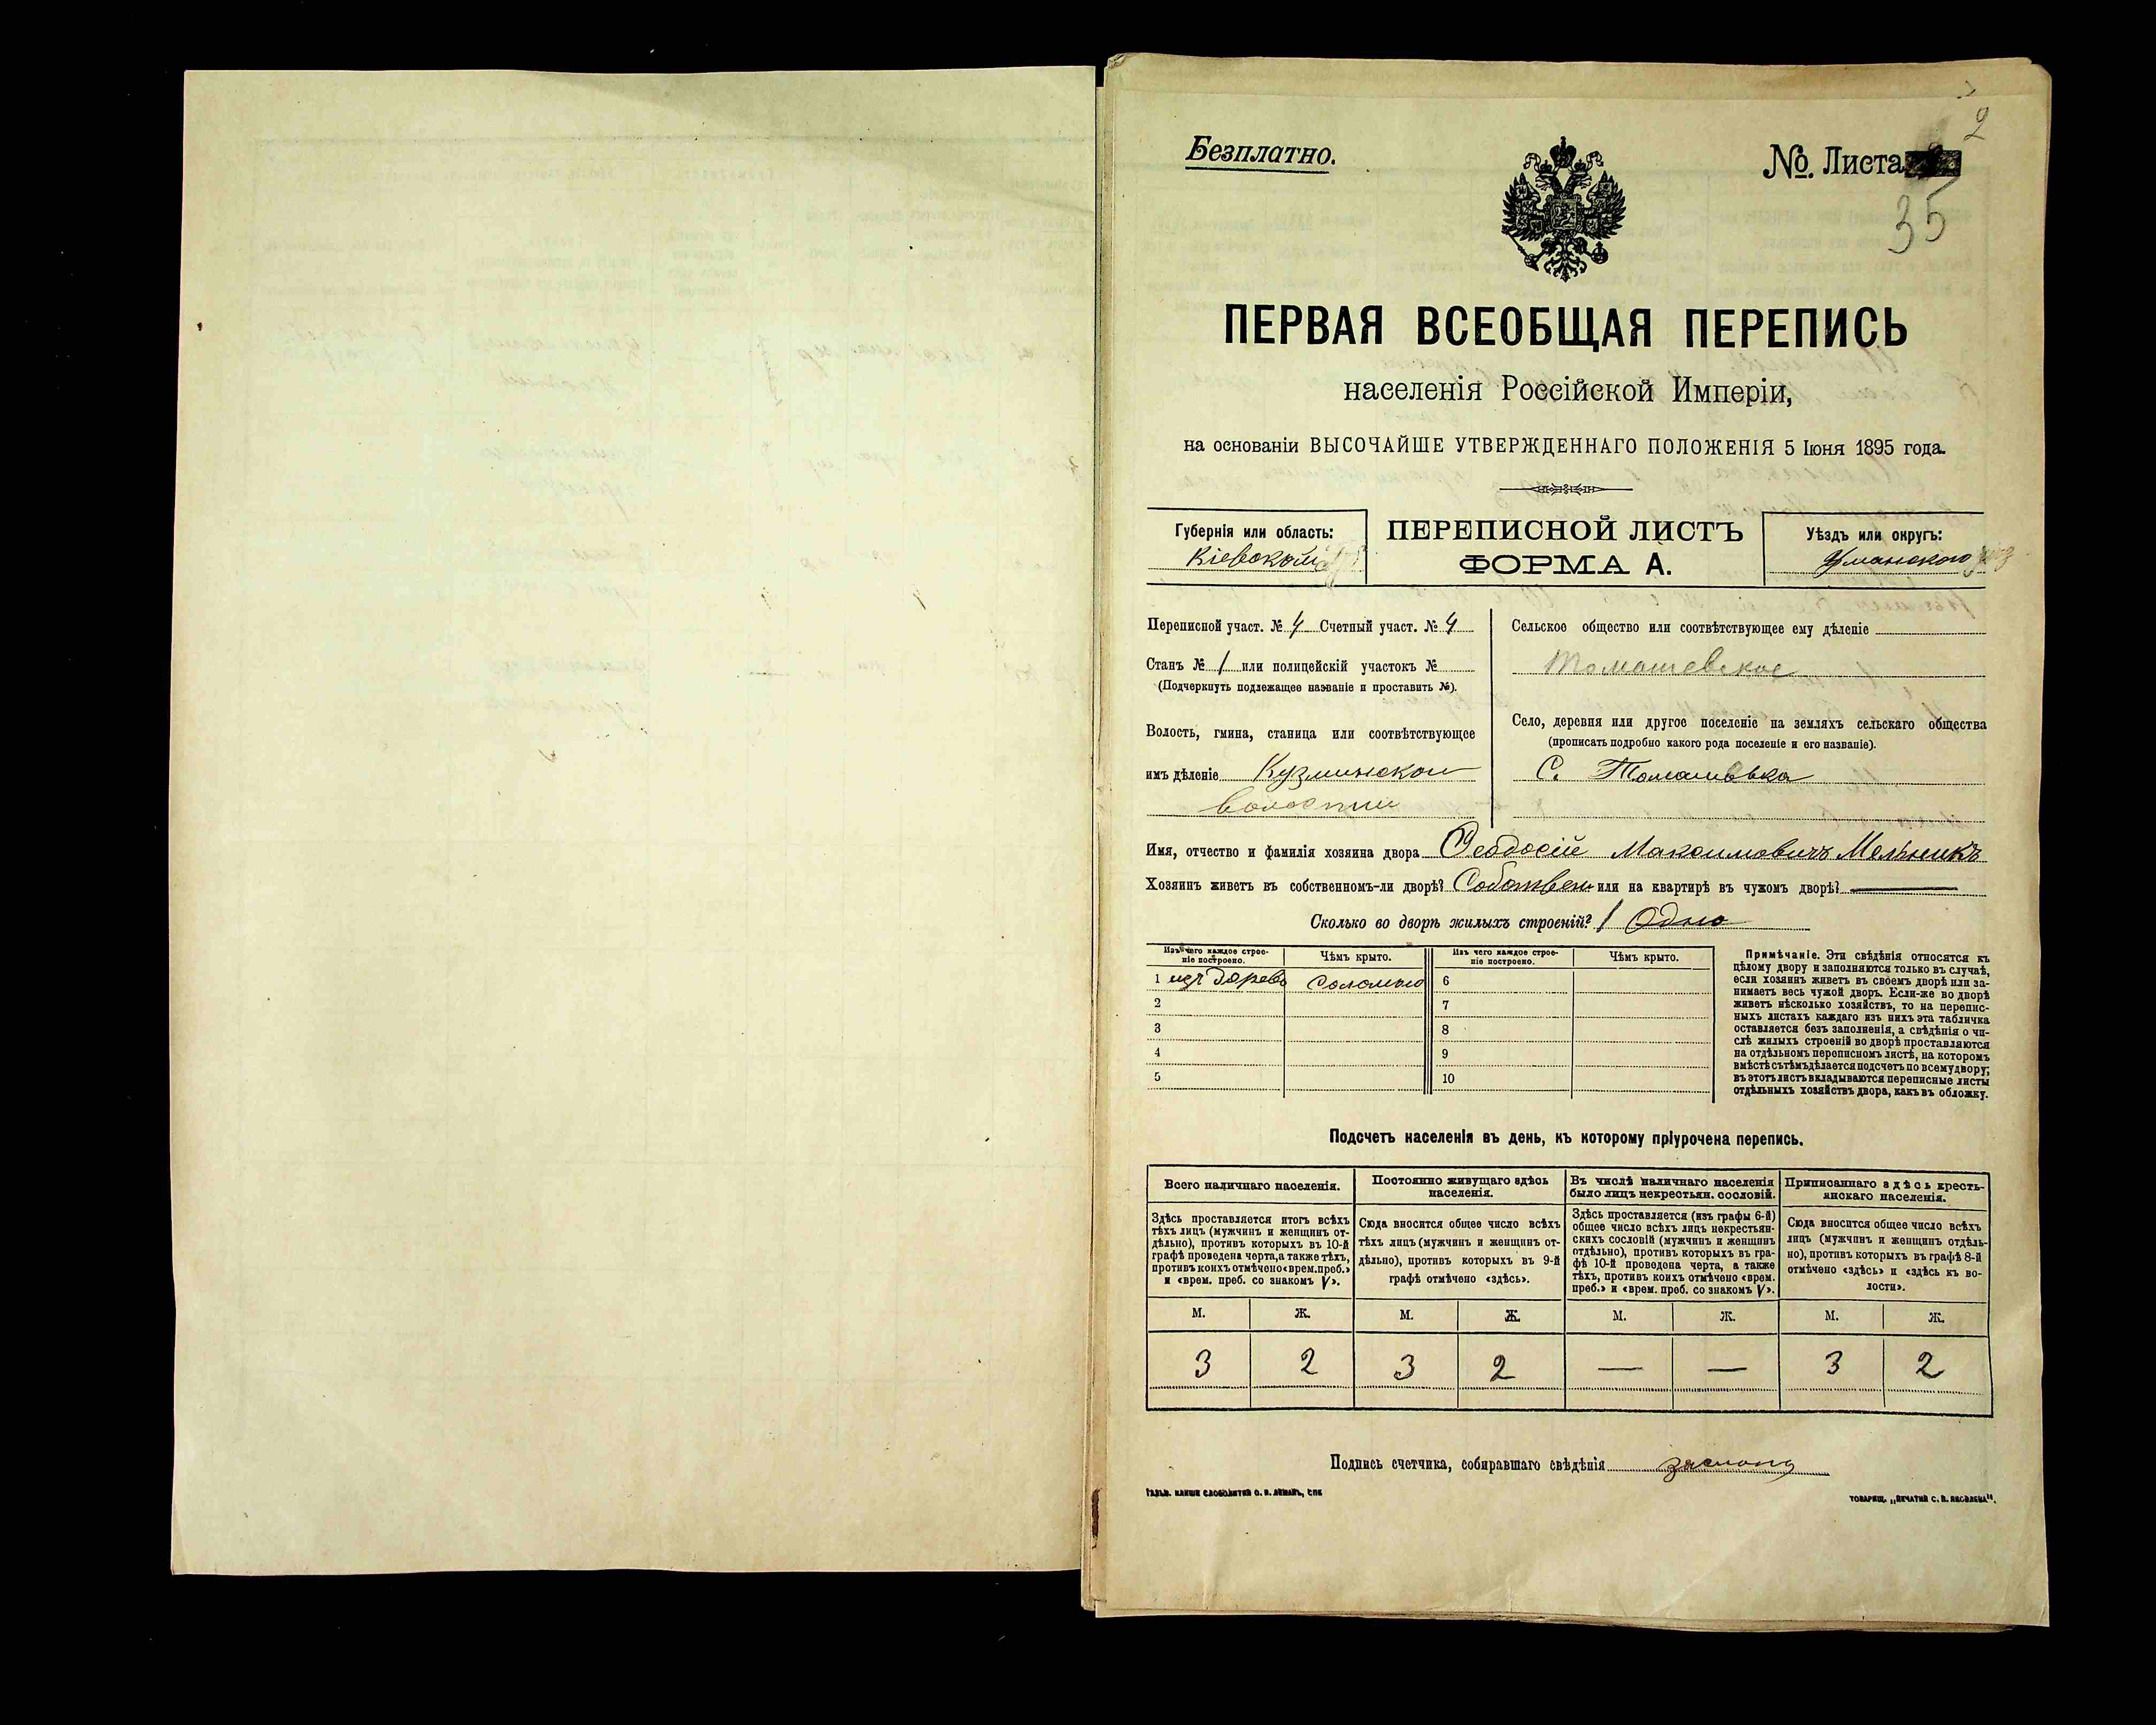 2
Безплатно.
№. Листа
35
ПЕРВАЯ ВСЕОБЩАЯ ПЕРЕПИСЬ
населенія Россійской Имперіи,
на основаніи ВЫСОЧАЙШЕ УТВЕРЖДЕННАГО ПОЛОЖЕНІЯ 5 Іюня 1895 года.
Губернія или область:
Кіевской
ПЕРЕПИСНОЙ ЛИСТЪ
ФОРМА А.
Уѣздъ или округъ:
Уманского
Переписной участ. № 4 Счетный участ. № 4
Станъ № 1 или полицейскій участокъ №
(Подчеркнуть подлежащее названіе и проставить №).
Волость, гмина, станица или соотвѣтствующее
имъ дѣленіе Кузминской
волости
Сельское общество или соотвѣтствующее ему дѣленіе
Томашевское
Село, деревня или другое поселеніе на земляхъ сельскаго общества
(прописать подробно какого рода поселеніе и его названіе).
С. Томашовка
Имя, отчество и фамилія хозяина двора Феодосій Максимовичъ Мельникъ
Хозяинъ живетъ въ собственномъ-ли дворѣ? Собствен или на квартирѣ въ чужомъ дворѣ? —
Сколько во дворѣ жилыхъ строеній? 1 Одно
Изъ чего каждое строе-
ніе построено.
Чѣмъ крыто.
Изъ чего каждое строе-
ніе построено.
Чѣмъ крыто.
1 изъ дерева соломою 6
2 7
3 8
4 9
5 10
Примѣчаніе. Эти свѣдѣнія относятся къ
цѣлому двору и заполняются только въ случаѣ,
если хозяинъ живетъ въ своемъ дворѣ или за-
нимаетъ весь чужой дворъ. Если-же во дворѣ
живетъ нѣсколько хозяйствъ, то на перепис-
ныхъ листахъ каждаго изъ нихъ эта табличка
оставляется безъ заполненія, а свѣдѣнія о чи-
слѣ жилыхъ строеній во дворѣ проставляются
на отдѣльномъ переписномъ листѣ, на которомъ
вмѣстѣ съ тѣмъ дѣлается подсчетъ по всему двору;
въ этотъ листъ вкладываются переписные листы
отдѣльныхъ хозяйствъ двора, какъ въ обложку.
Подсчетъ населенія въ день, къ которому пріурочена перепись.
Всего наличнаго населенія.
Здѣсь проставляется итогъ всѣхъ
тѣхъ лицъ (мужчинъ и женщинъ от-
дѣльно), противъ которыхъ въ 10-й
графѣ проведена черта, а также тѣхъ,
противъ коихъ отмѣчено «врем. преб.»
и «врем. преб. со знакомъ V».
Постоянно живущаго здѣсь
населенія.
Сюда вносится общее число всѣхъ
тѣхъ лицъ (мужчинъ и женщинъ от-
дѣльно), противъ которыхъ въ 9-й
графѣ отмѣчено «здѣсь».
Въ числѣ наличнаго населенія
было лицъ некрестьян. сословій.
Здѣсь проставляется (изъ графы 6-й)
общее число всѣхъ лицъ некрестьян-
скихъ сословій (мужчинъ и женщинъ
отдѣльно), противъ которыхъ въ гра-
фѣ 10-й проведена черта, а также
тѣхъ, противъ коихъ отмѣчено «врем.
преб.» и «врем. преб. со знакомъ V».
Приписаннаго здѣсь кресть-
янскаго населенія.
Сюда вносится общее число всѣхъ
лицъ (мужчинъ и женщинъ отдѣль-
но), противъ которыхъ въ графѣ 8-й
отмѣчено «здѣсь» и «здѣсь къ во-
лости».
М. Ж. М. Ж. М. Ж. М. Ж.
3 2 3 2 — — 3 2
Подпись счетчика, собиравшаго свѣдѣнія
ТОВАРИЩ. „ПЕЧАТНЯ С. П. ЯКОВЛЕВА".